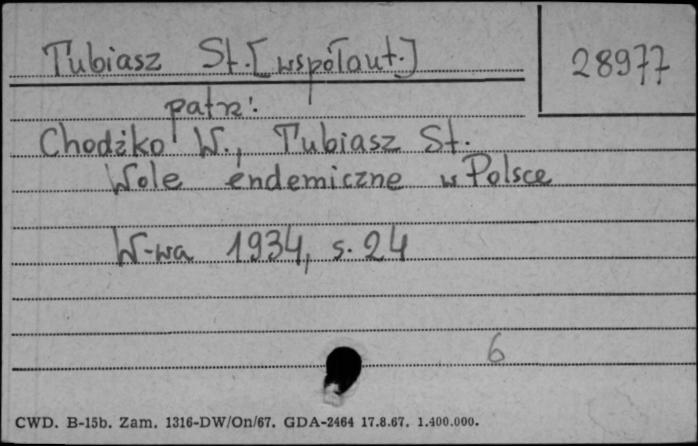 Tubiasz St. [współaut.]
28977
patrz:
Chodźko W., Tubiasz St.
Wole endemiczne w Polsce
W-wa 1934, s. 24
6
CWD. B-15b. Zam. 1316-DW/On/67. GDA-2464 17.8.67. 1.400.000.